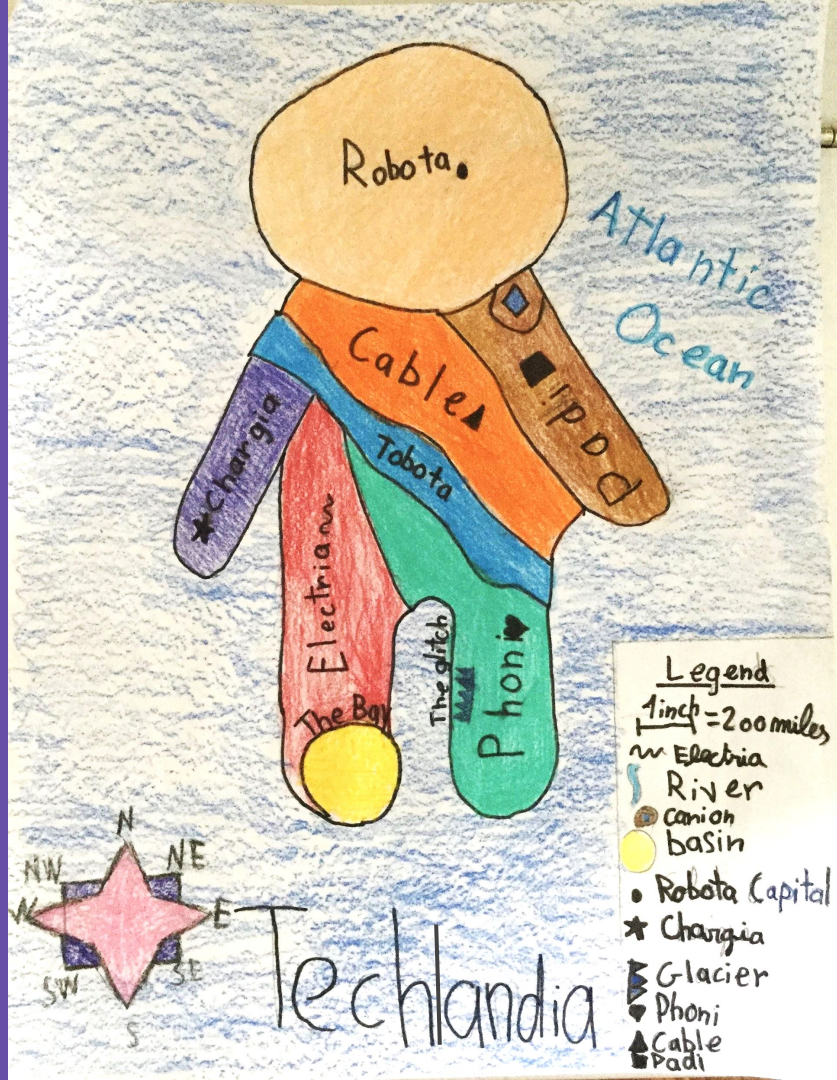 Robota
Atlantic
Ocean
Cable
ipad
Tobota
Chargia
Electria
The glitch
Phoni
The Bay
Legend
1inch = 200 miles
Electria
River
canion
basin
Robota Capital
Chargia
Glacier
Phoni
Cable
Padi
N
NW NE
W E
SW SE
S
Techlandia